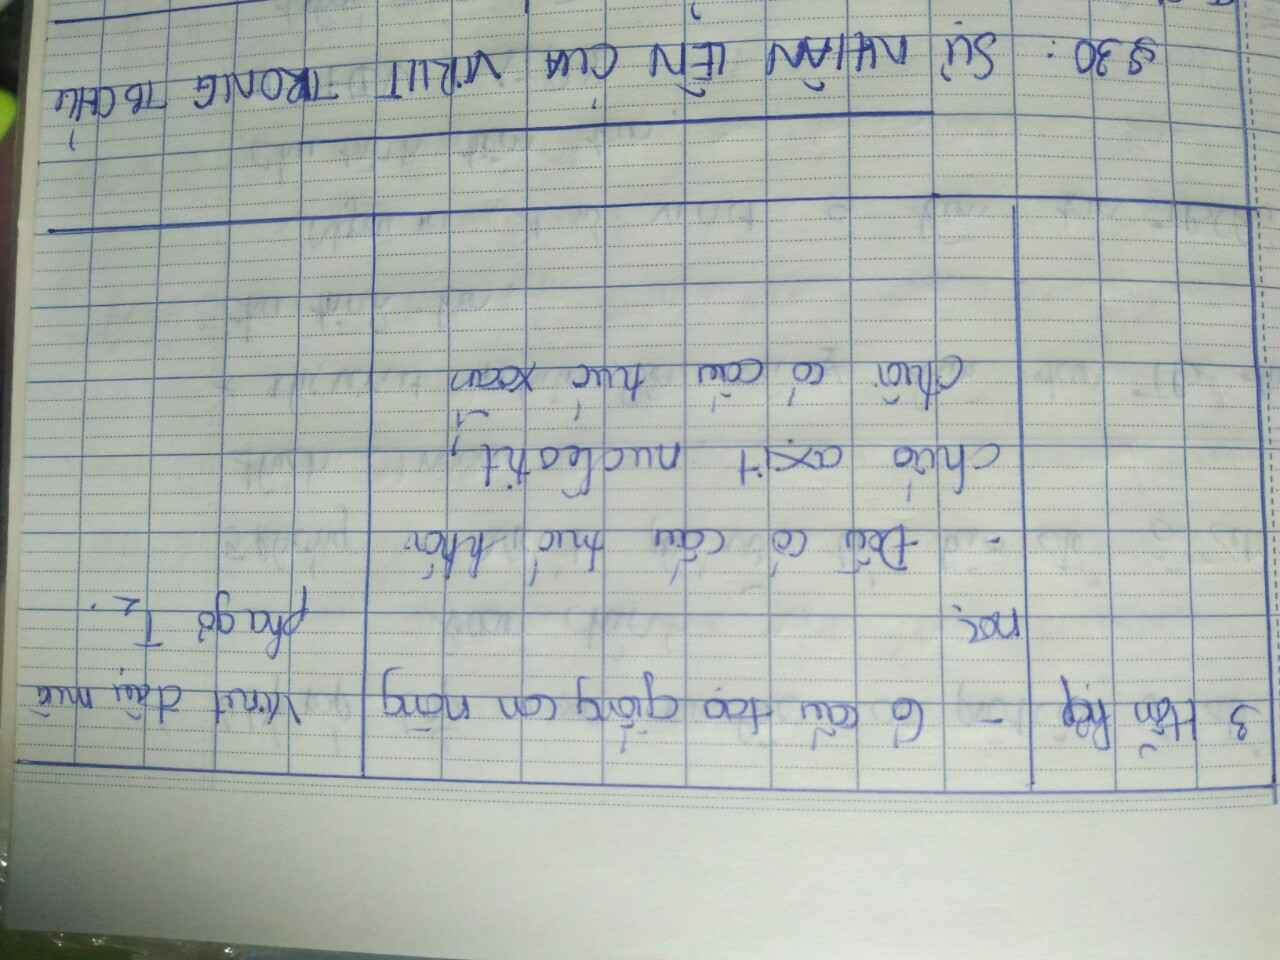 3. Hỗn hợp - Có cấu tạo giống con nòng Virut đậu mùa
nọc. phagơ T2.
- Đầu có cấu trúc khối
chứa axit nuclêotit,
đuôi có cấu trúc xoắn
§30: SỰ NHÂN LÊN CỦA VIRUT TRONG TB CHỦ